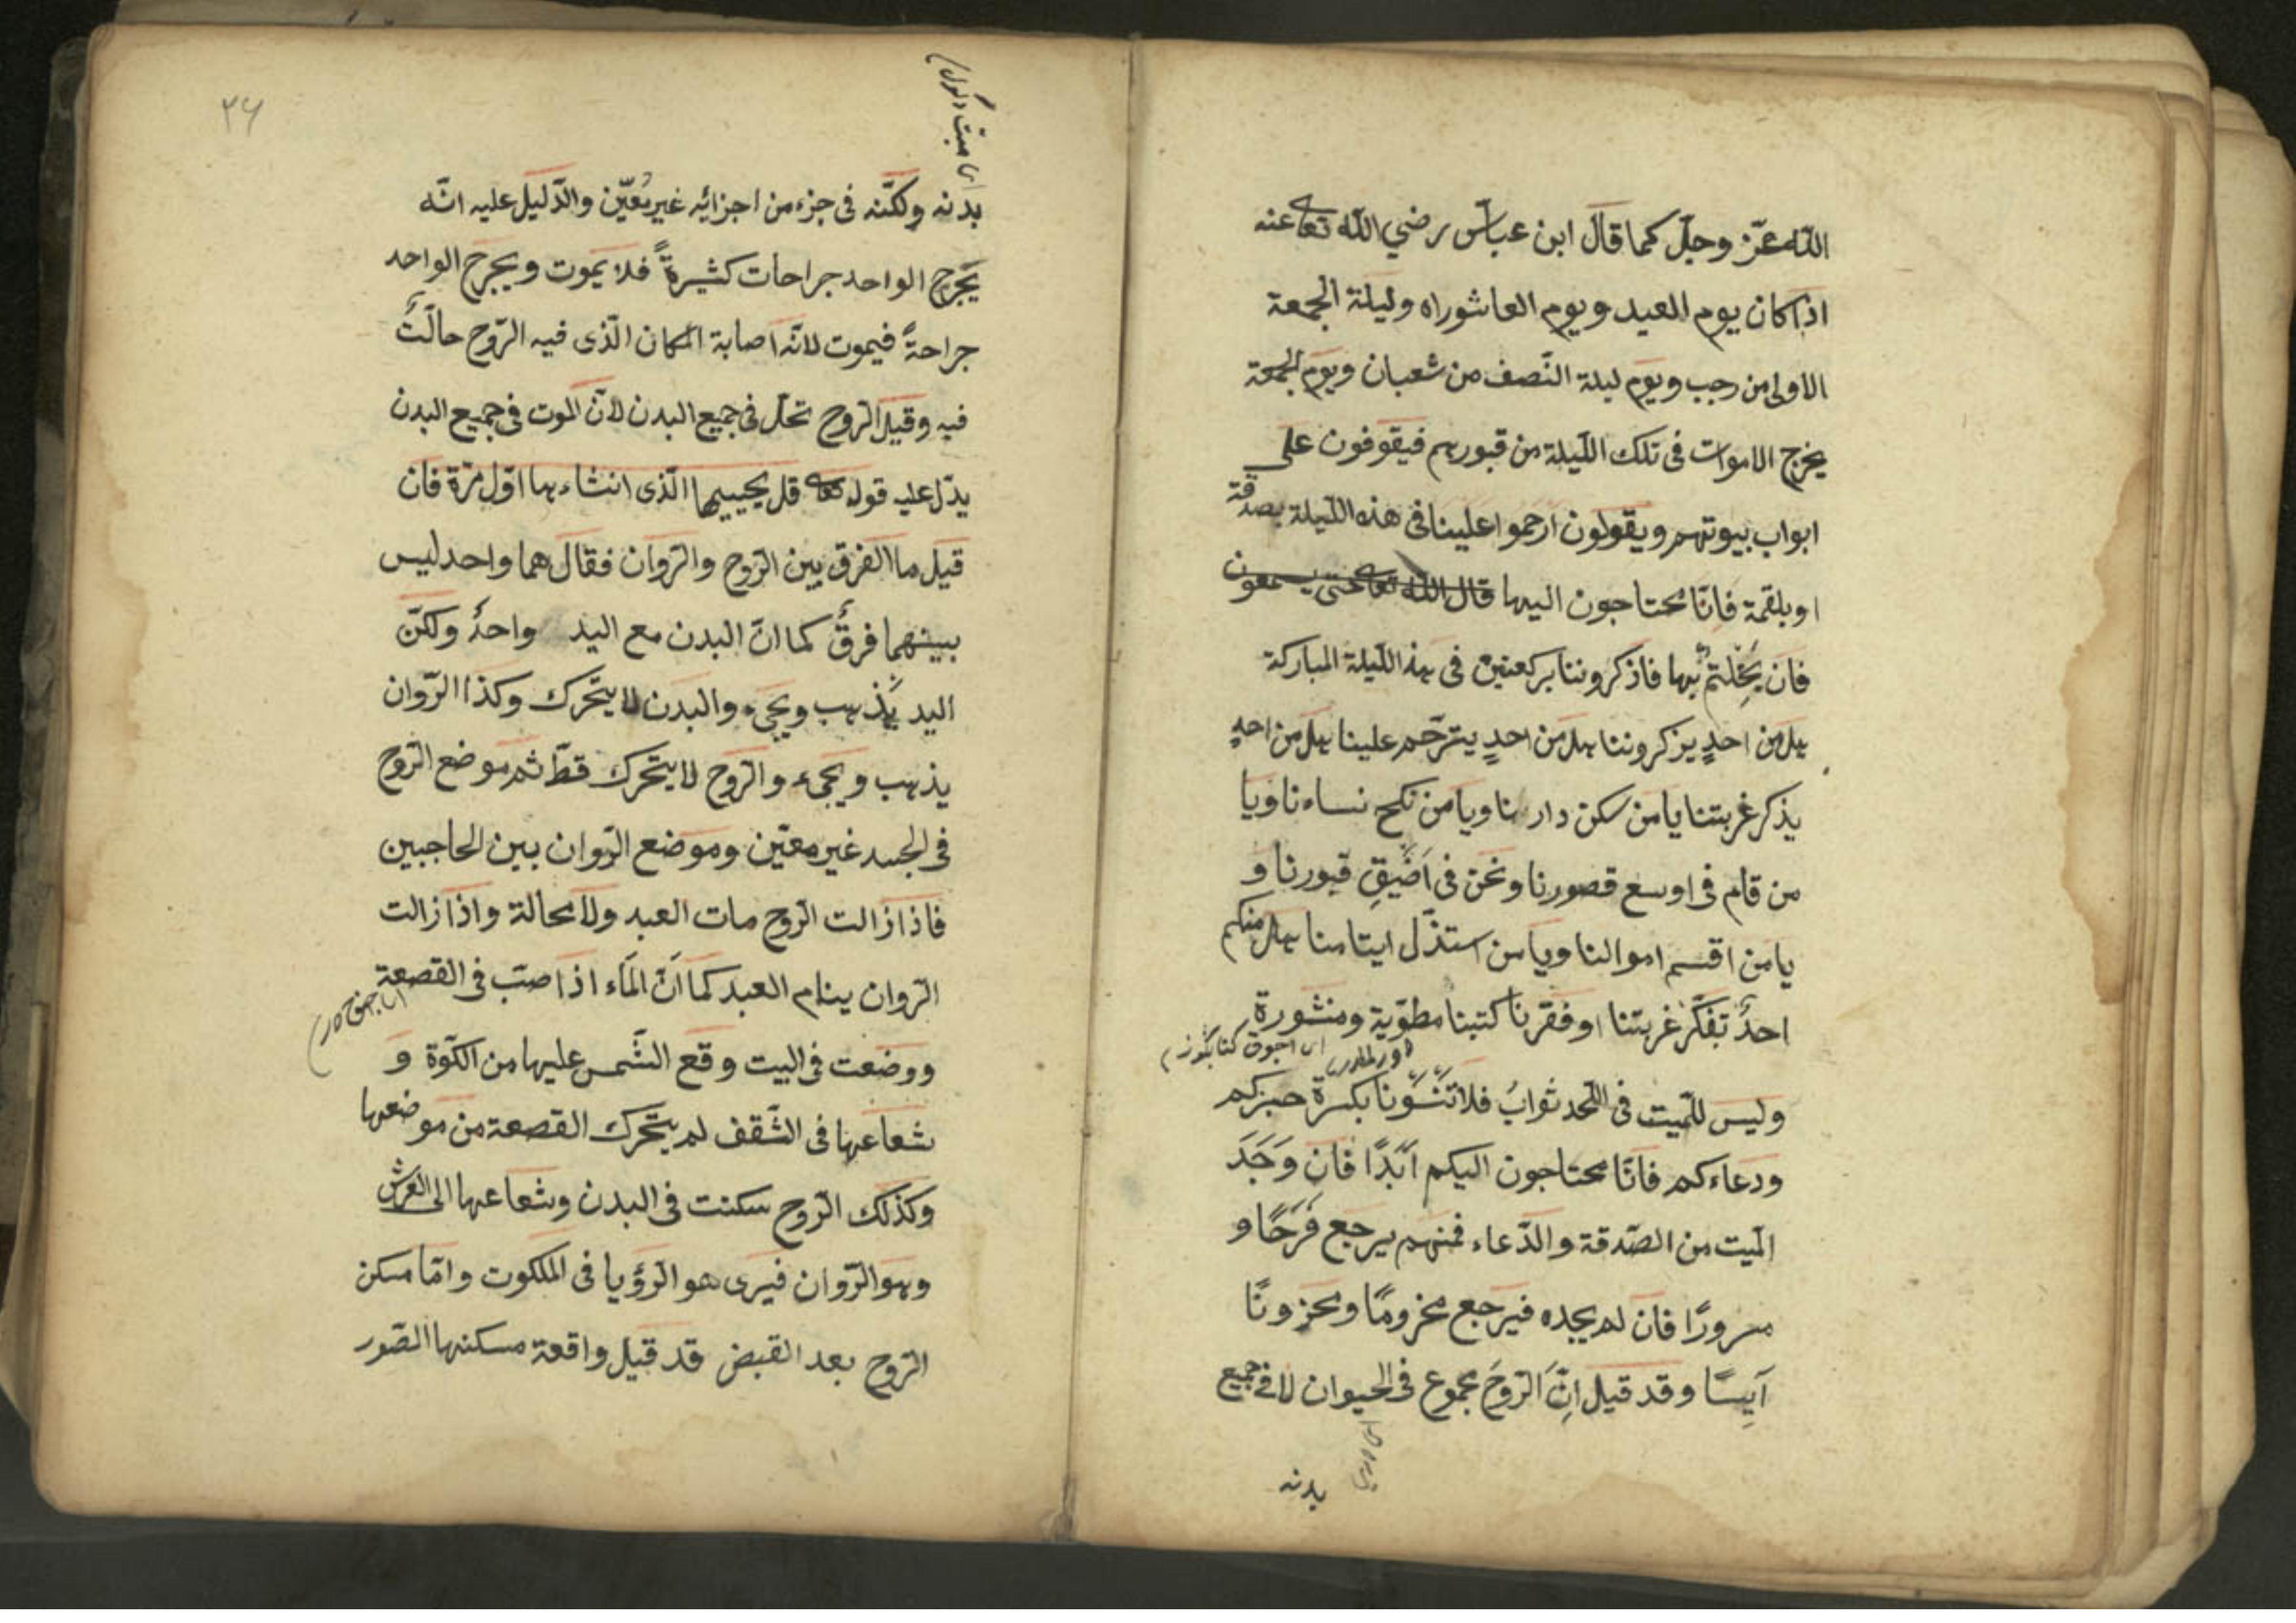 الله عزّ وجلّ كما قال ابن عباس رضي الله تعا عنه
اذا كان يوم العيد ويوم العاشوراء وليلة الجمعة
الاولى من رجب ويوم ليلة النّصف من شعبان ويوم الجمعة
يخرج الاموات فى تلك اللّيلة من قبورهم فيقوفون على
ابواب بيوتهم ويقولون ارحموا علينا فى هذه اللّيلة بصدقة
او بلقمة فانّا محتاجون اليها قال الله تعا حتى يسمعون
فان بَخِلتم بها فاذكروننا بركعتين فى هذه اللّيلة المباركة
هل من احدٍ يزكروننا هل من احدٍ يترّحم علينا هل من احدٍ
يذكر غربتنا يا من سكن دارنا ويا من نكح نساءنا ويا
من قام فى اوسع قصورنا ونحن فى اَضْيَقِ قبورنا و
يا من اقسم اموالنا ويا من استذّل ايتامنا هل منكم
احدٌ تفكّر غربتنا او فقرنا كتبنا مطوّية ومنشورة
وليس للمّيت فى اللّحد ثوابٌ فلا تَنْسَوْنا بكسرة خبزكم
ودعاءكم فانّا محتاجون اليكم اَبَدًا فان وَجَدَ
الميّت من الصّدقة والدّعاء فمنهم يرجع فَرَحًا و
مسرورًا فان لم يجده فيرجع مخرومًا ومحزونًا
آيِسًا وقد قيل اِنَّ الرّوحَ مجموع فى الحيوان لا فى جميع
بدنه
٣٤
بدنه ولكنّه فى جزء من اجزائه غير مُعَيّن والدّليل عليه انّه
يَجرح الواحد جراحات كثيرةً فلا يَموت ويجرح الواحد
جراحةً فيموت لانّه اصابة المكان الّذى فيه الرّوح حالّتٌ
فيه وقيل الرّوح تحلّ فى جميع البدن لانّ الموت فى جميع البدن
يدّل عليه قوله تعا قل يحييها الّذى انشاءها اوّل مرّة فان
قيل ما الفرق بين الرّوح والرّوان فقال هما واحد ليس
بينهما فرقٌ كما انّ البدن مع اليد واحدٌ ولكنّ
اليد يَذهب ويجىء والبدن لا يتحّرك وكذا الرّوان
يذهب ويجىء والرّوح لا يتحّرك قطّ ثم موضع الرّوح
فى الجسد غير معيّن وموضع الرّوان بين الحاجبين
فاذا زالت الرّوح مات العبد ولا محالة واذا زالت
الرّوان ينام العبد كما اَنّ المَاء اذا صبّ فى القصعة
ووضعت فى البيت وقع الشّمس عليها من الكّوة و
شعاعها فى السّقف لم يتحّرك القصعة من موضعها
وكذلك الرّوح سكنت فى البدن وشعاعها الى العرش
وهو الرّوان فيرى هو الرّؤيا فى الملكوت وامّا مسكن
الرّوح بعد القبض قد قيل واقعة مسكنها الصّور